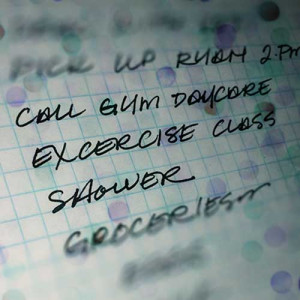 PICK UP RYAN 2 PM
CALL GYM DAYCARE
EXCERCISE CLASS
SHOWER
GROCERIES